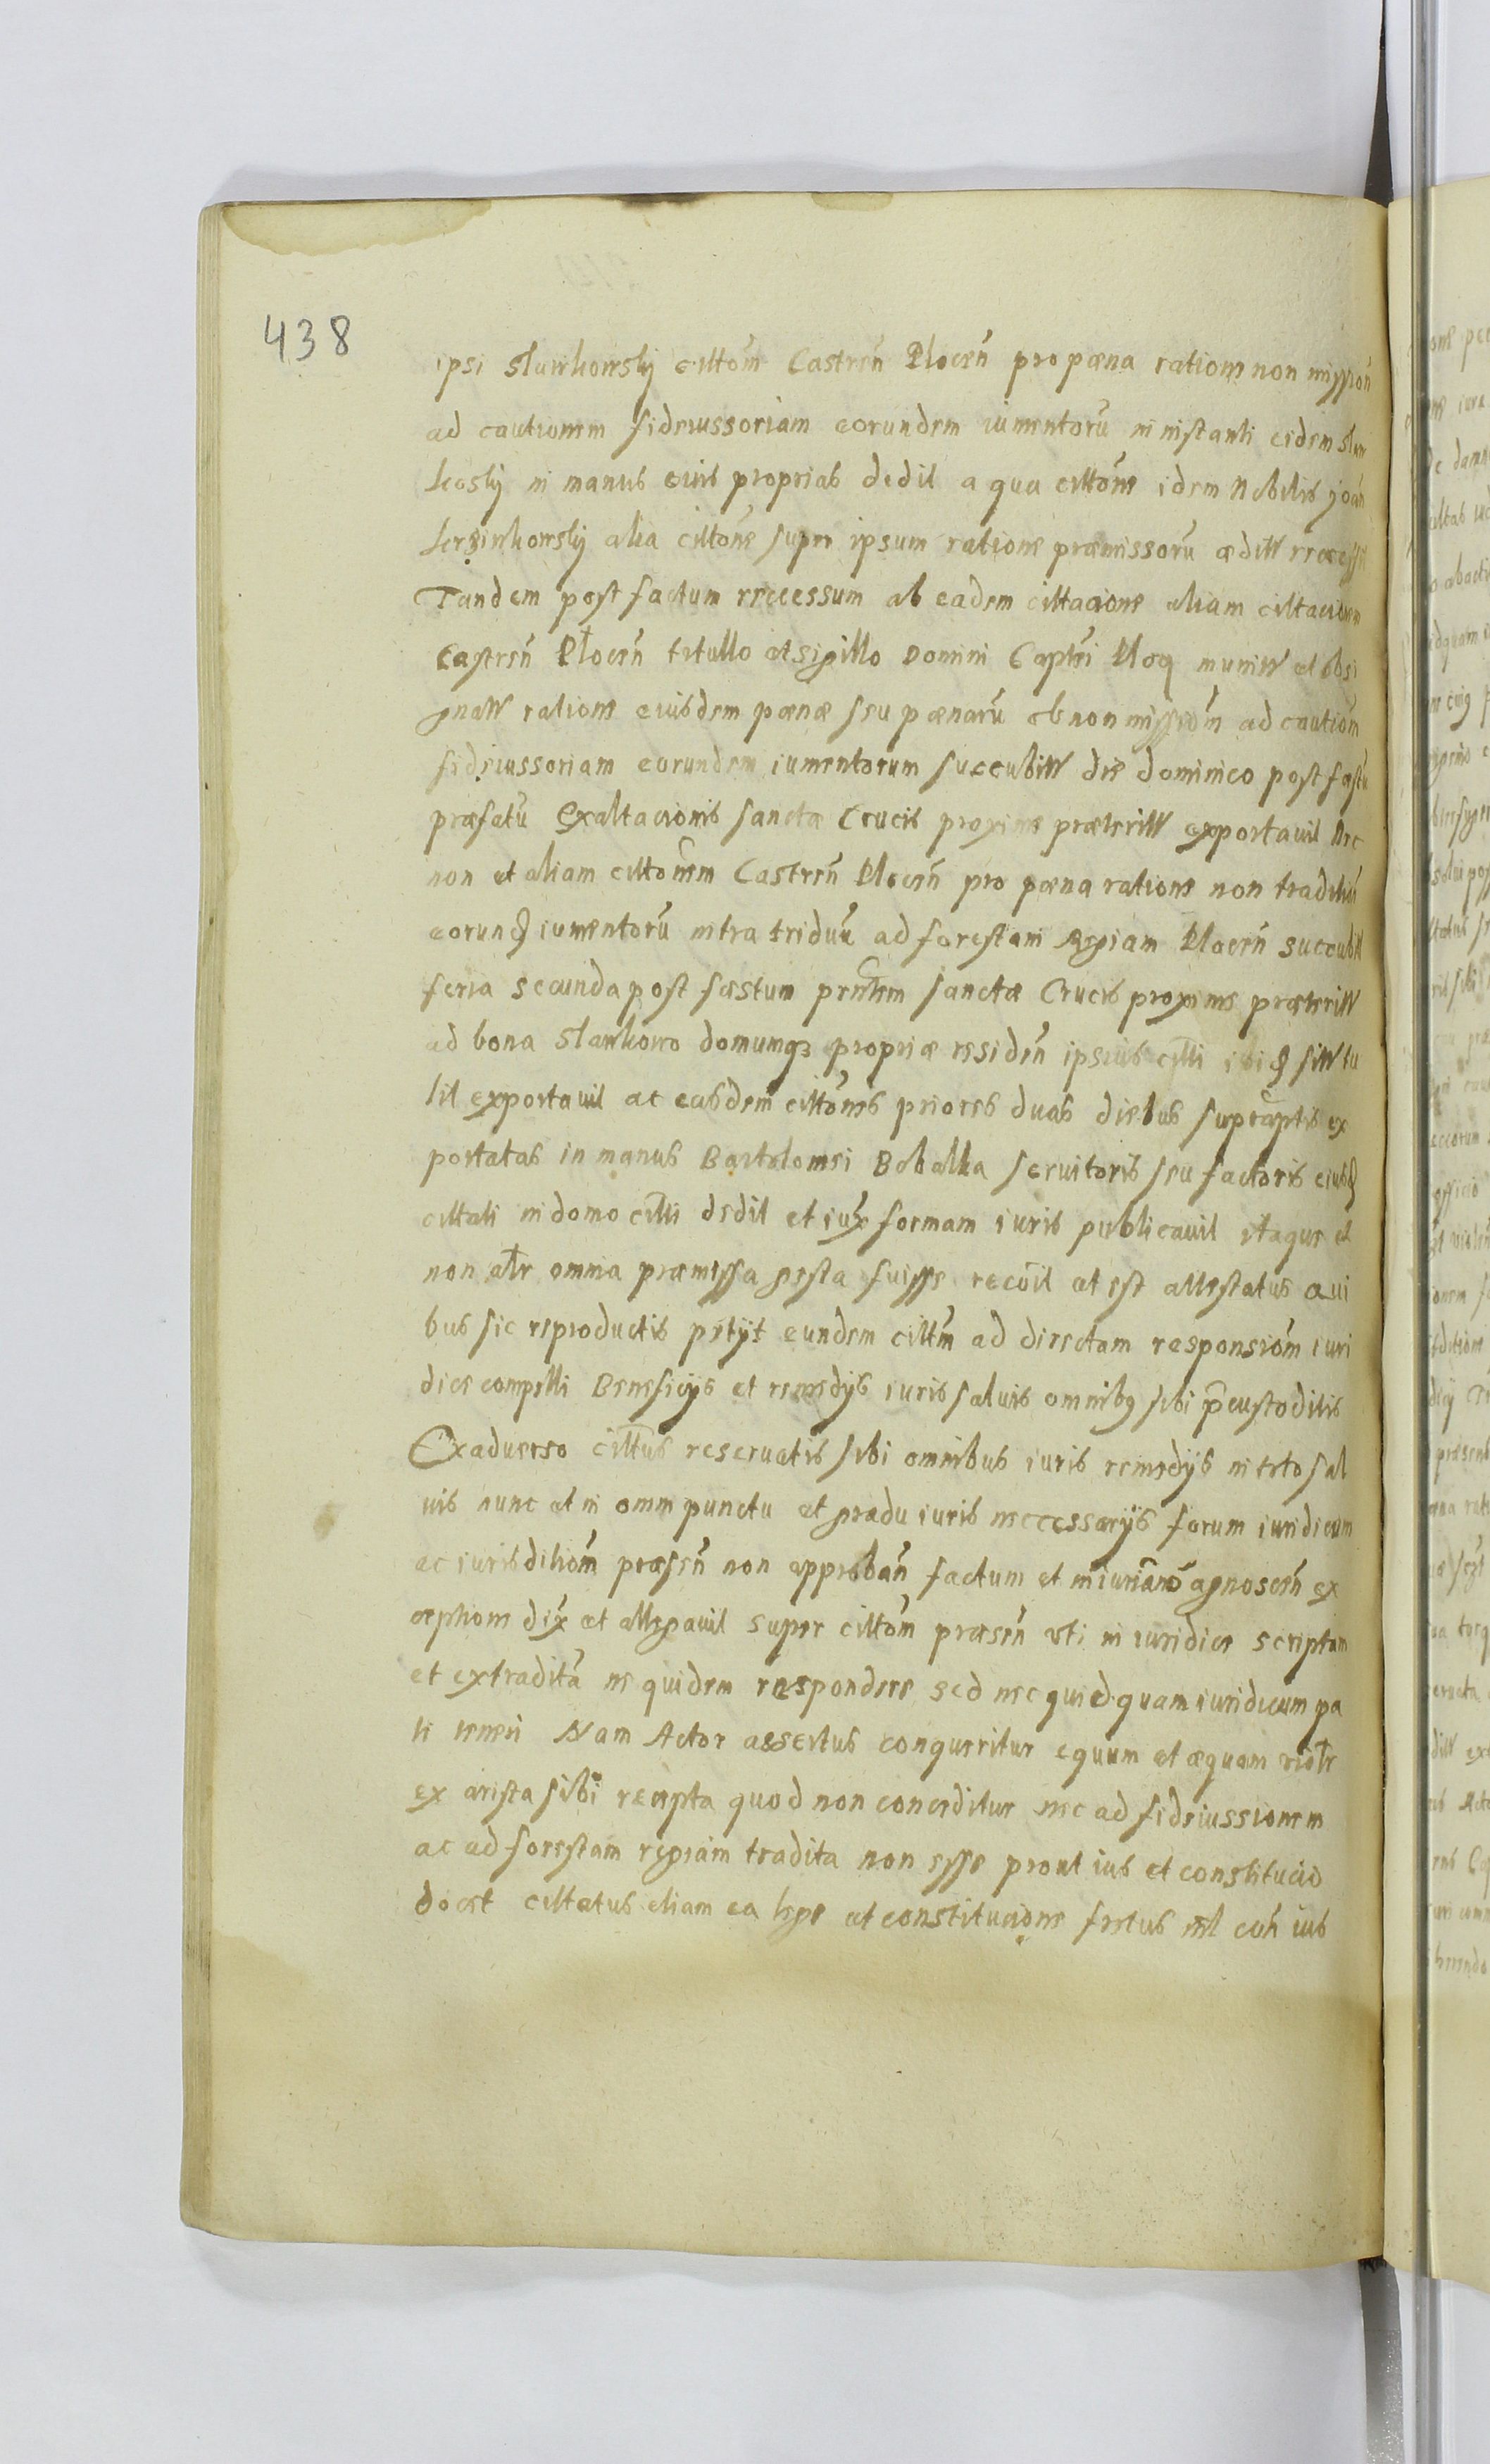 438
ipsi Slawkowskÿ cittõm Castren̄ Plocen̄ pro pœna ratione non mission̄
ad cautionem fideiussoriam eorundem iumentorū in instanti eidem Slaw
kosky in manus eius proprias dedit a qua cittõne idem Nobilis Joan
alia cittõne super ipsum ratione præmissorū æditt recessit
Tandem post factum recessum ab eadem cittacione aliam cittacionem
Castren̄ Plocen̄ titullo et sigillo Domini Captēi Plocꝭ munitt et obsi
gnatt ratione eiusdem pœnæ seu pœnarū ob non missiõm ad cautiõm
fideiussoriam eorundem iumentorum succubitt die dominico post festū
præfatū Exaltacionis sanctæ Crucis proxime præteritt exportauit Nec
non et aliam cittõnem Castren̄ Plocen̄ pro pœna ratione non traditiõn
eorunꝺ iumentorū intra triduū ad forestam Regiam Plocen̄ succubitt
feria secunda post fæstum prñtem sanctæ Crucis proxime præteritt
ad bona Slawkowo domumqꝫ propriæ residen̄ ipsius citti ibiꝺ sitt tu
lit exportauit ac easdem cittõnes priores duas diebus supraptis ex
portatas in manus Bartolomei Bobalka seruitoris seu factoris eiusꝺ
cittati in domo citti dedit et iux formam iuris publicauit itaque et
non alr̄ omnia præmissa gesta fuisse recōit et est attestatus Qui
bus sic reproductis petÿt eundem cittm̄ ad directam responsiõm iuri
dice compelli Beneficÿs et remedÿs iuris saluis omnibꝯ sibi p̄custoditis
Exaduerso cittus reseruatis sibi omnibus iuris remedÿs in toto sal
uis nunc et in omni punctu et gradu iuris neccessarÿs forum iuridicum
ac iurisditiõm præsen̄ non approban̄ factum et iniuriam nō agnoscen̄ ex
ceptione dix̄ et allegauit super cittõm præsen̄ vti in iuridice scriptam
et extraditā ne quidem respondere sed nec quiedquam iuridicum pa
ti teneri Nam Actor assertus conqueritur equum et æquam violr̄
ex arista sibi recepta quod non conceditur nec ad fideiussionem
ac ad forestam regiam tradita non esse prout ius et constitucio
docet cittatus etiam ea lege et constitucione fretus ius